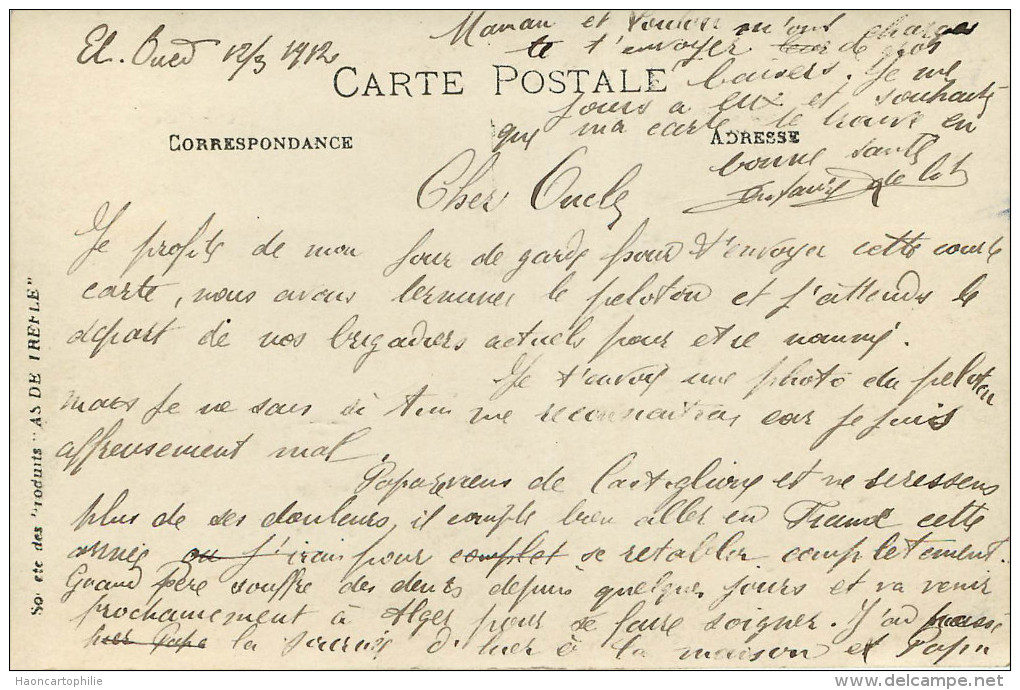 El. Oued 12/3 1912
CARTE POSTALE
CORRESPONDANCE
ADRESSE
Cher Oncle
Je profite de mon jour de garde pour t'envoyer cette courte
carte, nous avons terminer le peloton et j'attends le
départ de nos brigadiers actuels pour etre nommé.
Je t'envoie une photo du peloton
mais je ne sais si tu me reconnaitras car je suis
affreusement mal.
Papa reviens de Castiglione et ne seressens
plus de ses douleurs, il compte bien aller en France cette
année ou j'irais pour complet se retablir completement.
Grand Père souffre des dents depuis quelques jours et va venir
prochainement à Alger pour se faire soigner. J'ai passé
hier Papa la journée d'hier à la maison et Papa
Maman et m'ont chargés
te t'envoyer leur de gros
baisers. Je me
jours a eux et souhaite
que ma carte te trouve en
bonne santé
Société des Produits "AS DE TREFLE"
Haoncartophilie
www.delcampe.net